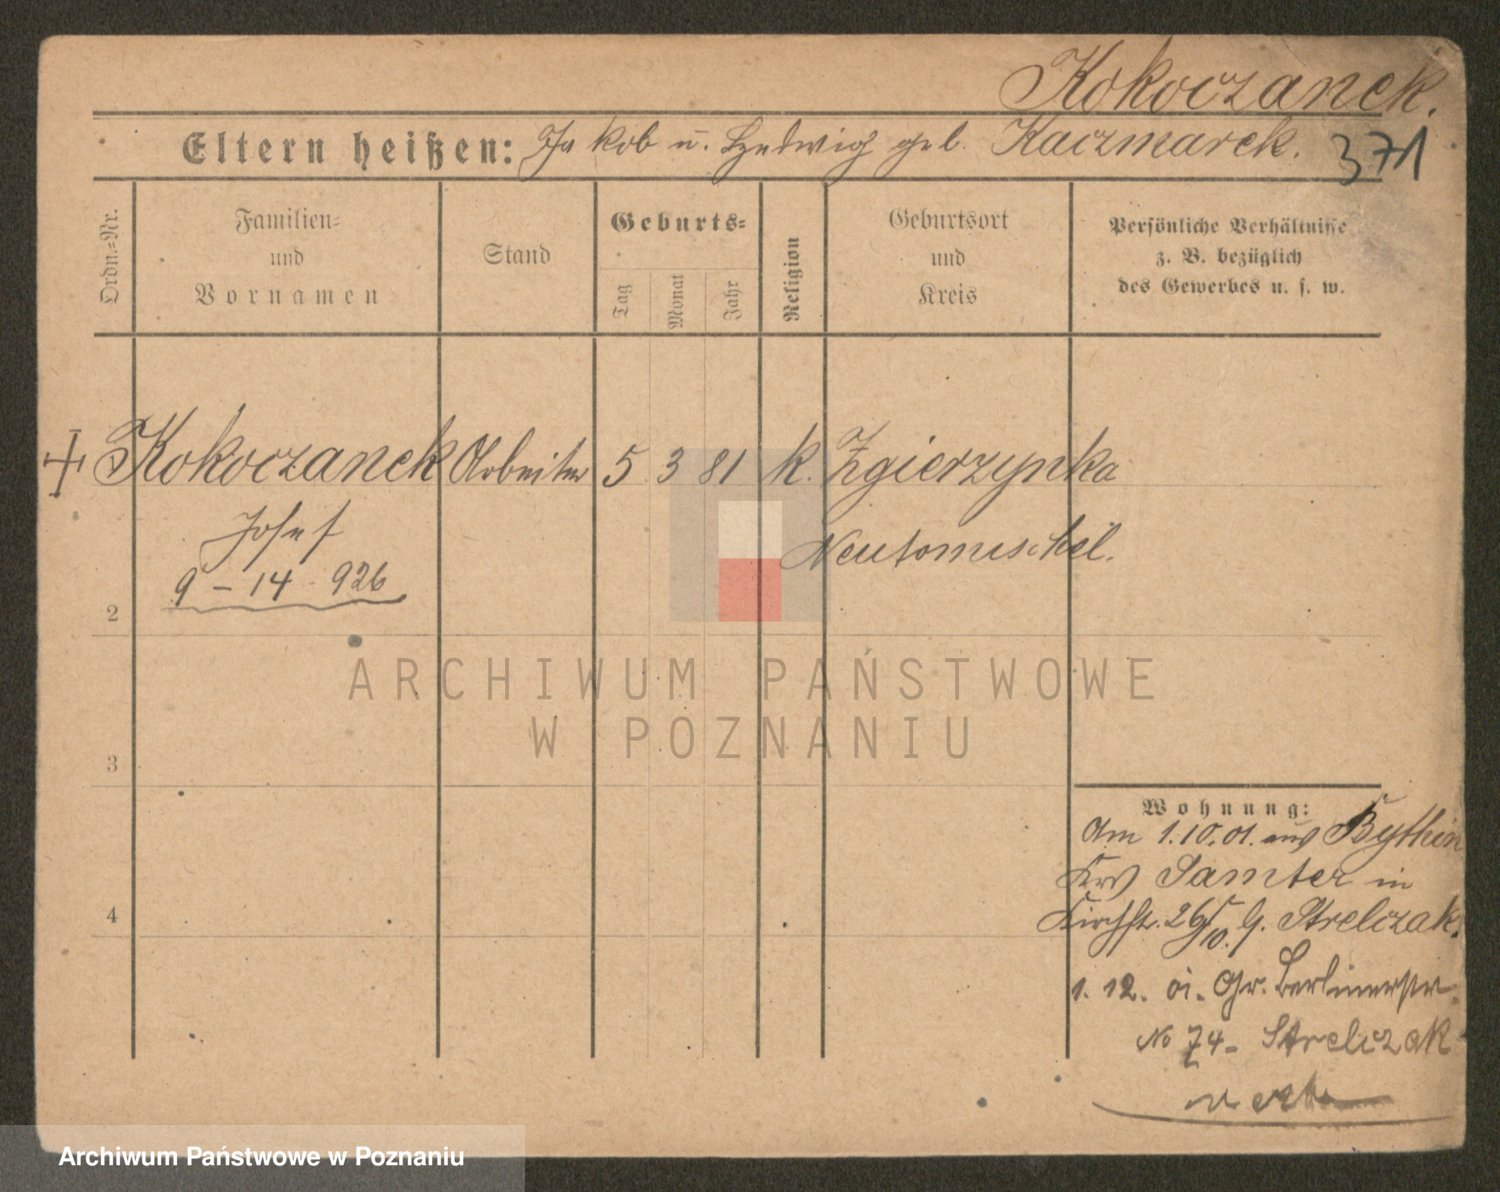 Kokoczanek.
Eltern heißen: Jakob u. Hedwig geb. Kaczmarek.
371
Ordn.=Nr.
Familien=
und
Vornamen
Stand
Geburts=
Tag
Monat
Jahr
Religion
Geburtsort
und
Kreis
Persönliche Verhältnisse
z. B. bezüglich
des Gewerbes u. s. w.
Kokoczanek Arbeiter 5 3 81 k. Zgierzynka
Josef
Neutomischel.
9 - 14 - 926
2
3
4
Wohnung:
Am 1.10.01. aus Bythin
Krs Samter in
Kirchstr. 26 b. Strelczak.
1. 12. 01. Gr. Berlinerstr.
No 74 - Strelczak
ARCHIWUM PAŃSTWOWE
W POZNANIU
Archiwum Państwowe w Poznaniu